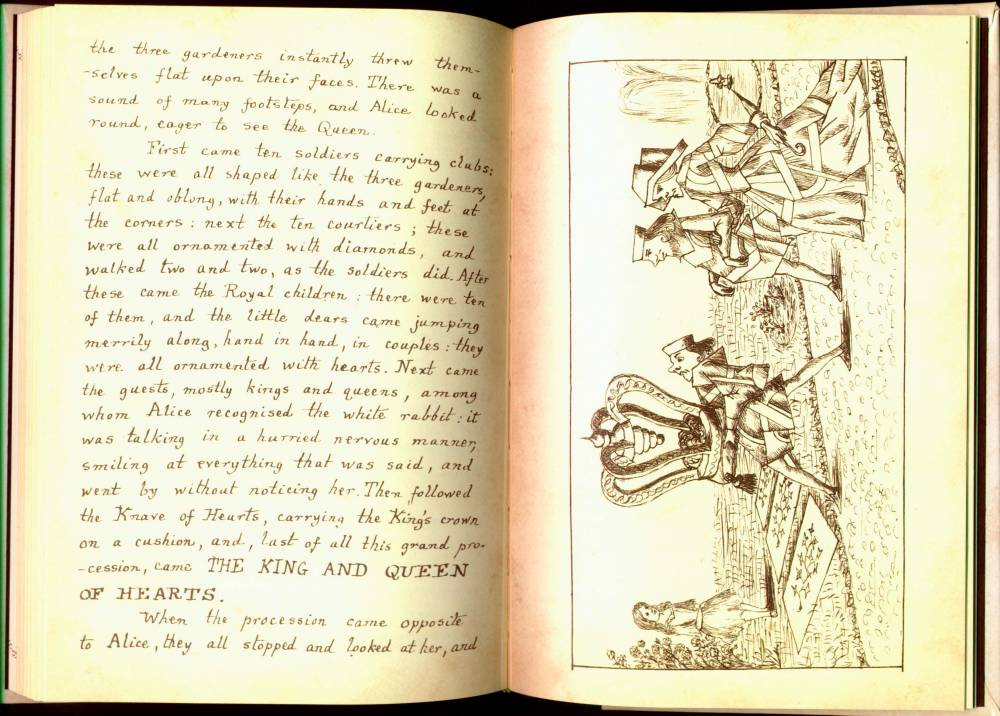 the three gardeners instantly threw them-
-selves flat upon their faces. There was a
sound of many footsteps, and Alice looked
round, eager to see the Queen.
First came ten soldiers carrying clubs:
these were all shaped like the three gardeners,
flat and oblong, with their hands and feet at
the corners: next the ten courtiers; these
were all ornamented with diamonds, and
walked two and two, as the soldiers did. After
these came the Royal children: there were ten
of them, and the little dears came jumping
merrily along, hand in hand, in couples: they
were all ornamented with hearts. Next came
the guests, mostly kings and queens, among
whom Alice recognised the white rabbit: it
was talking in a hurried nervous manner,
smiling at everything that was said, and
went by without noticing her. Then followed
the Knave of Hearts, carrying the King's crown
on a cushion, and, last of all this grand pro-
-cession, came THE KING AND QUEEN
OF HEARTS.
When the procession came opposite
to Alice, they all stopped and looked at her, and